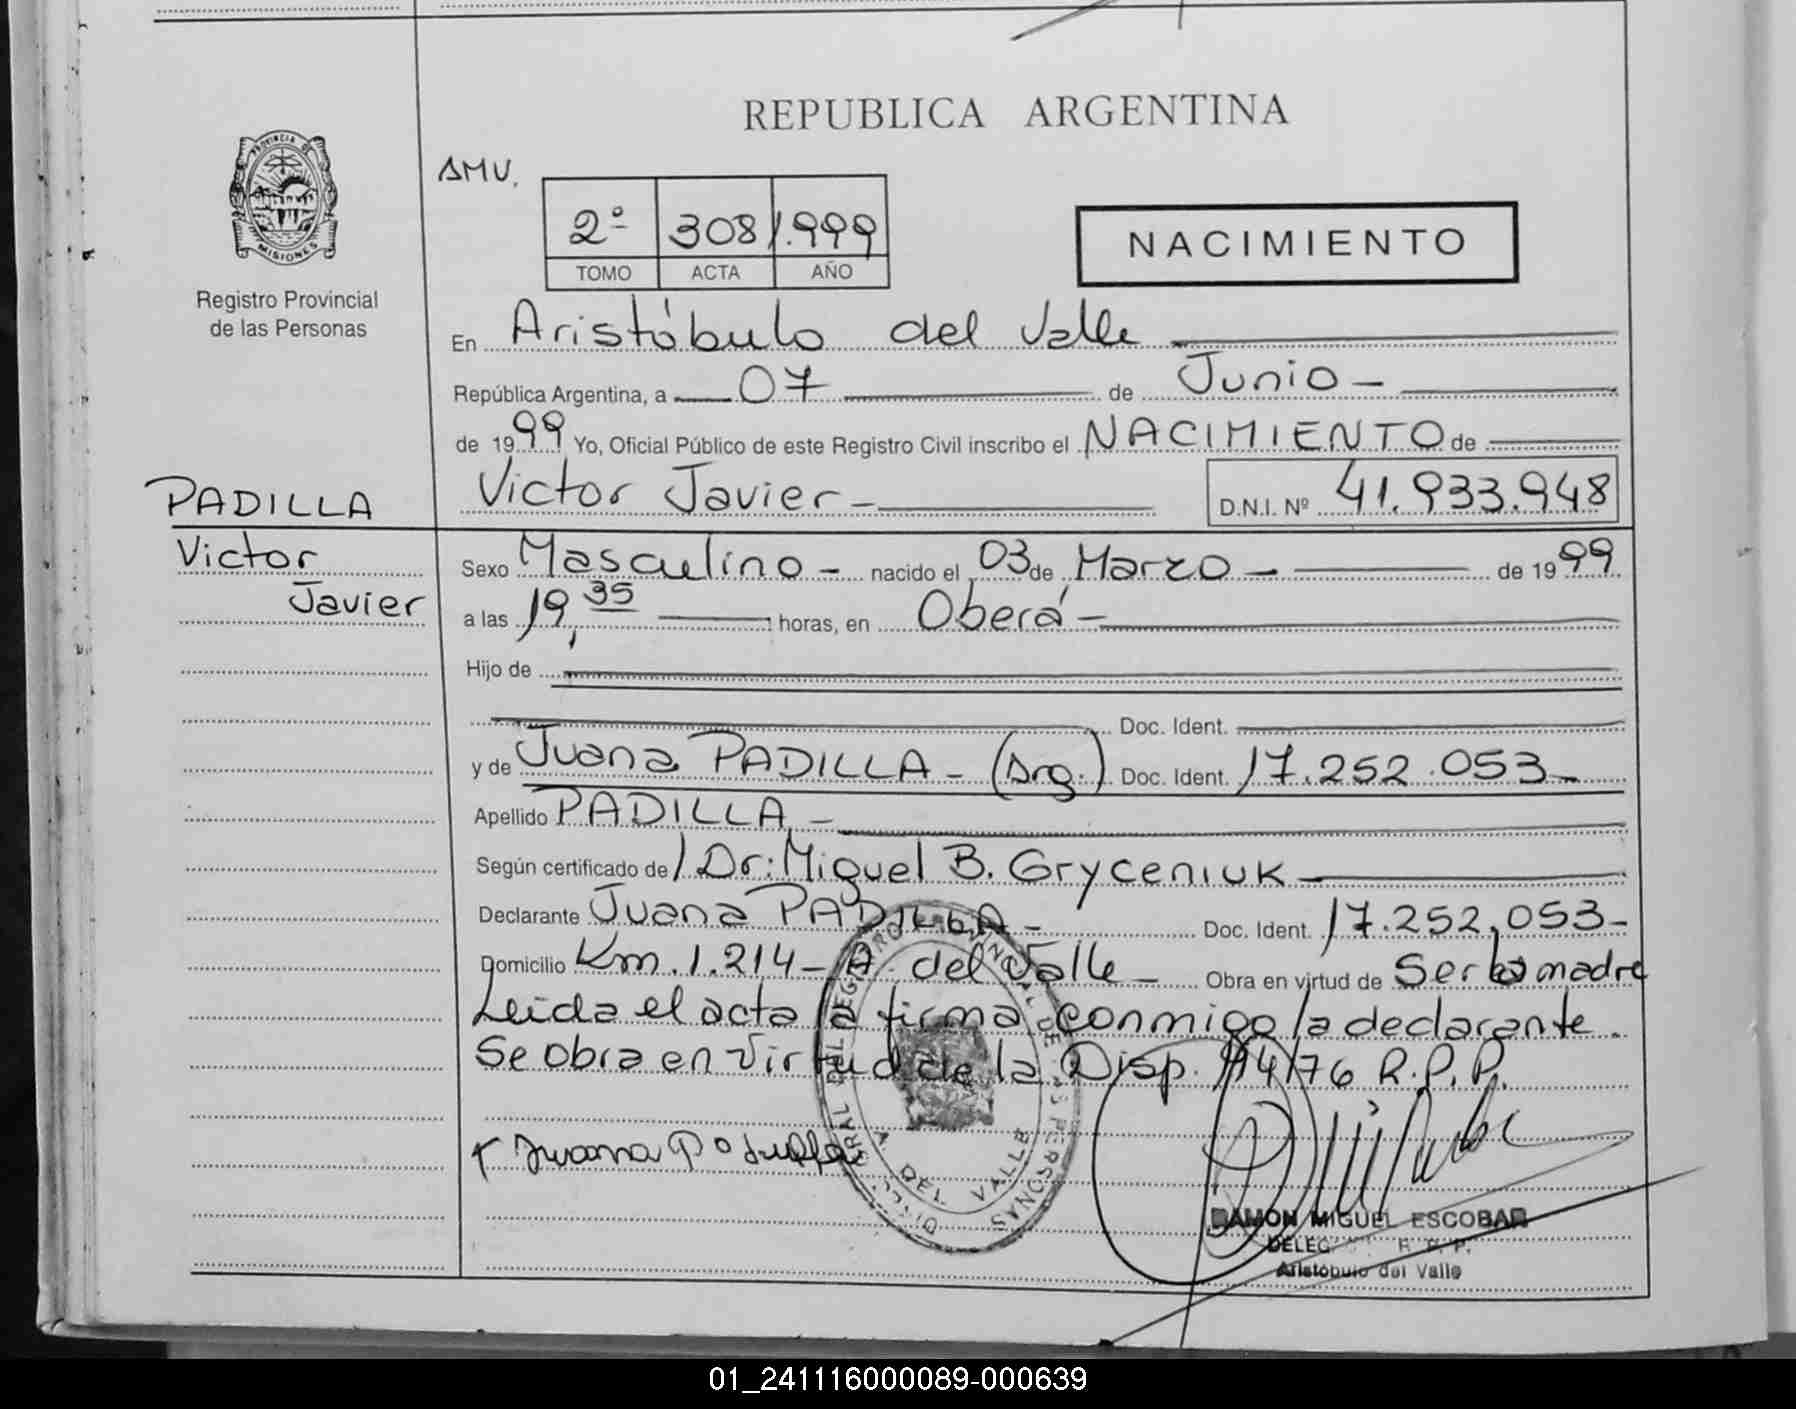 REPUBLICA ARGENTINA
PROVINCIA DE MISIONES
Registro Provincial
de las Personas
AMV.
2º 308 1.999
TOMO ACTA AÑO
NACIMIENTO
En Aristóbulo del Valle
República Argentina, a 07 de Junio -
de 1999 Yo, Oficial Público de este Registro Civil inscribo el NACIMIENTO de
PADILLA
Victor
Javier
Victor Javier - D.N.I. Nº 41.933.948
Sexo Masculino - nacido el 03 de Marzo - de 1999
a las 19,35 horas, en Oberá -
Hijo de
Doc. Ident.
y de Juana PADILLA - (Arg.) Doc. Ident. 17.252.053 -
Apellido PADILLA -
Según certificado de / Dr: Miguel B. Gryceniuk
Declarante Juana PADILLA - Doc. Ident. 17.252,053 -
Domicilio Km. 1.214 - A. del Valle - Obra en virtud de Ser la madre
Leida el acta la firma conmigo la declarante.
Se obra en virtud de la Disp. 114/76 R.P.P.
Juana Padilla
A. DEL VALLE
RAMON MIGUEL ESCOBAR
R. P. P.
Aristobulo del Valle
01_241116000089-000639